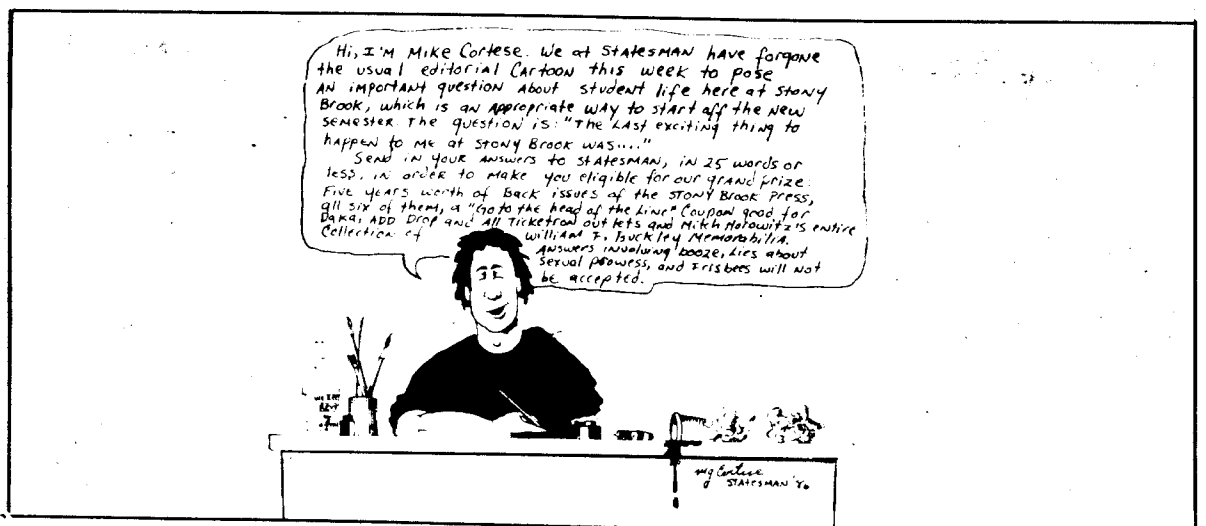 Hi, I'M MIKE Cortese. We at STATESMAN have forgone
the usual editorial CARTOON this week to pose
AN important question About student life here at STONY
BROOK, which is an Appropriate WAY to start off the NEW
SEMESTER. The question is: "The LAST exciting thing to
happen to ME at STONY BROOK WAS...."
Send in your ANSWERS to STATESMAN, in 25 words or
less, in order to make you eligible for our grand prize:
Five years worth of Back issues of the STONY BROOK PRESS,
all six of them, a "Go to the head of the Line" Coupon good for
DAKA, ADD DROP and All Ticketron outlets and Mitch Horowitz's entire
Collection of William F. Buckley Memorabilia.
Answers involving booze, Lies about
sexual prowess, and Frisbees will not
be accepted.
STATESMAN '86